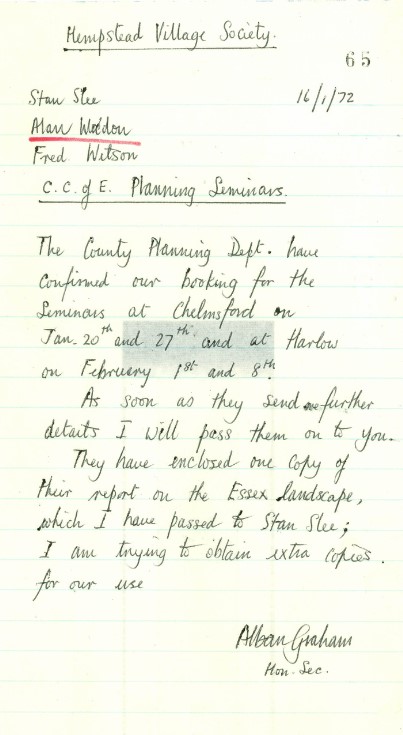 Hempstead Village Society.
65
Stan Slee
16/1/72
Alan Weldon
Fred Witson
C.C. of E. Planning Seminars.
The County Planning Dept. have
confirmed our booking for the
Seminars at Chelmsford on
Jan. 20th and 27th and at Harlow
on February 1st and 8th.
As soon as they send me further
details I will pass them on to you.
They have enclosed one copy of
their report on the Essex landscape,
which I have passed to Stan Slee;
I am trying to obtain extra copies.
for our use
Alban Graham
Hon. Sec.